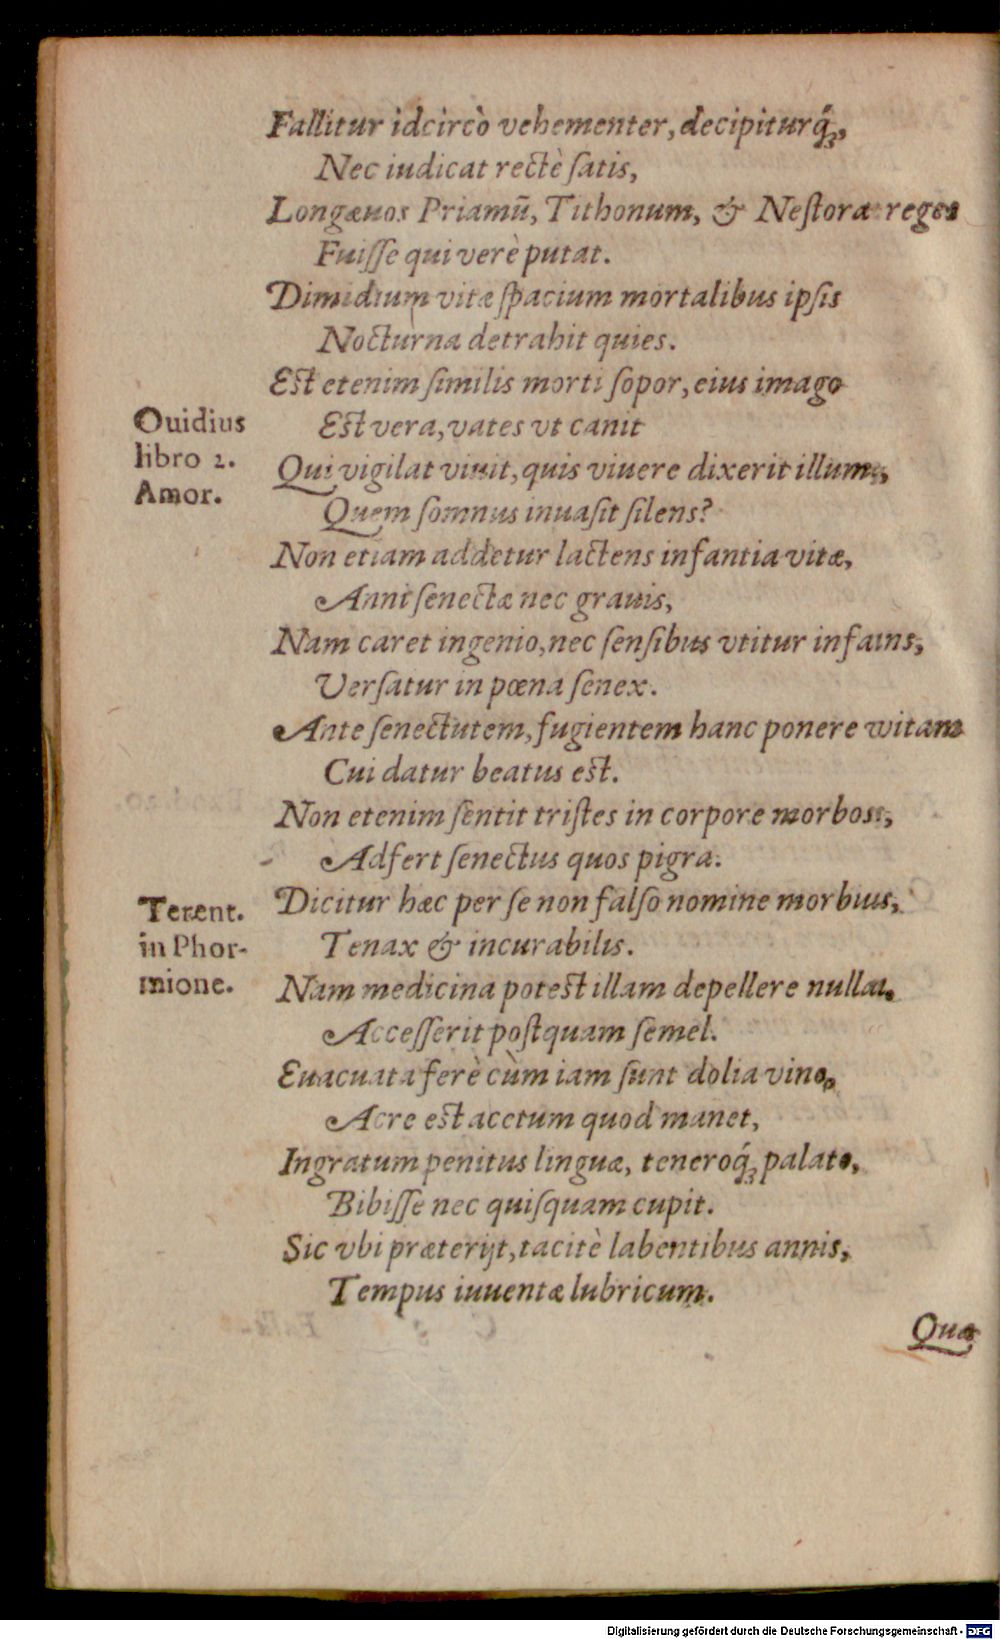 Fallitur idcircò vehementer, decipiturq́ꝫ,
Nec iudicat rectè ſatis,
Longæuos Priamū, Tithonum, & Neſtora reges
Fuiſſe qui verè putat.
Dimidium vitæ ſpacium mortalibus ipſis
Nocturna detrahit quies.
Est etenim ſimilis morti ſopor, eius imago
Est vera, vates vt canit
Ouidius
libro 2.
Amor.
Qui vigilat viuit, quis viuere dixerit illum,
Quem ſomnus inuaſit ſilens?
Non etiam addetur lactens infantia vitæ,
Anni ſenectæ nec grauis,
Nam caret ingenio, nec ſenſibus vtitur infans,
Verſatur in pœna ſenex.
Ante ſenectutem, fugientem hanc ponere vitam
Cui datur beatus est.
Non etenim ſentit triſtes in corpore morbos,
Adfert ſenectus quos pigra.
Dicitur hæc per ſe non falſo nomine morbus,
Tenax & incurabilis.
Terent.
in Phor-
mione.
Nam medicina potest illam depellere nulla,
Acceſſerit poſtquam ſemel.
Euacuata ferè cùm iam ſunt dolia vino,
Acre est acetum quod manet,
Ingratum penitus linguæ, teneroq́ꝫ palato,
Bibiſſe nec quiſquam cupit.
Sic vbi præterijt, tacitè labentibus annis,
Tempus iuuentæ lubricum.
Quæ
Digitalisierung gefördert durch die Deutsche Forschungsgemeinschaft - DFG